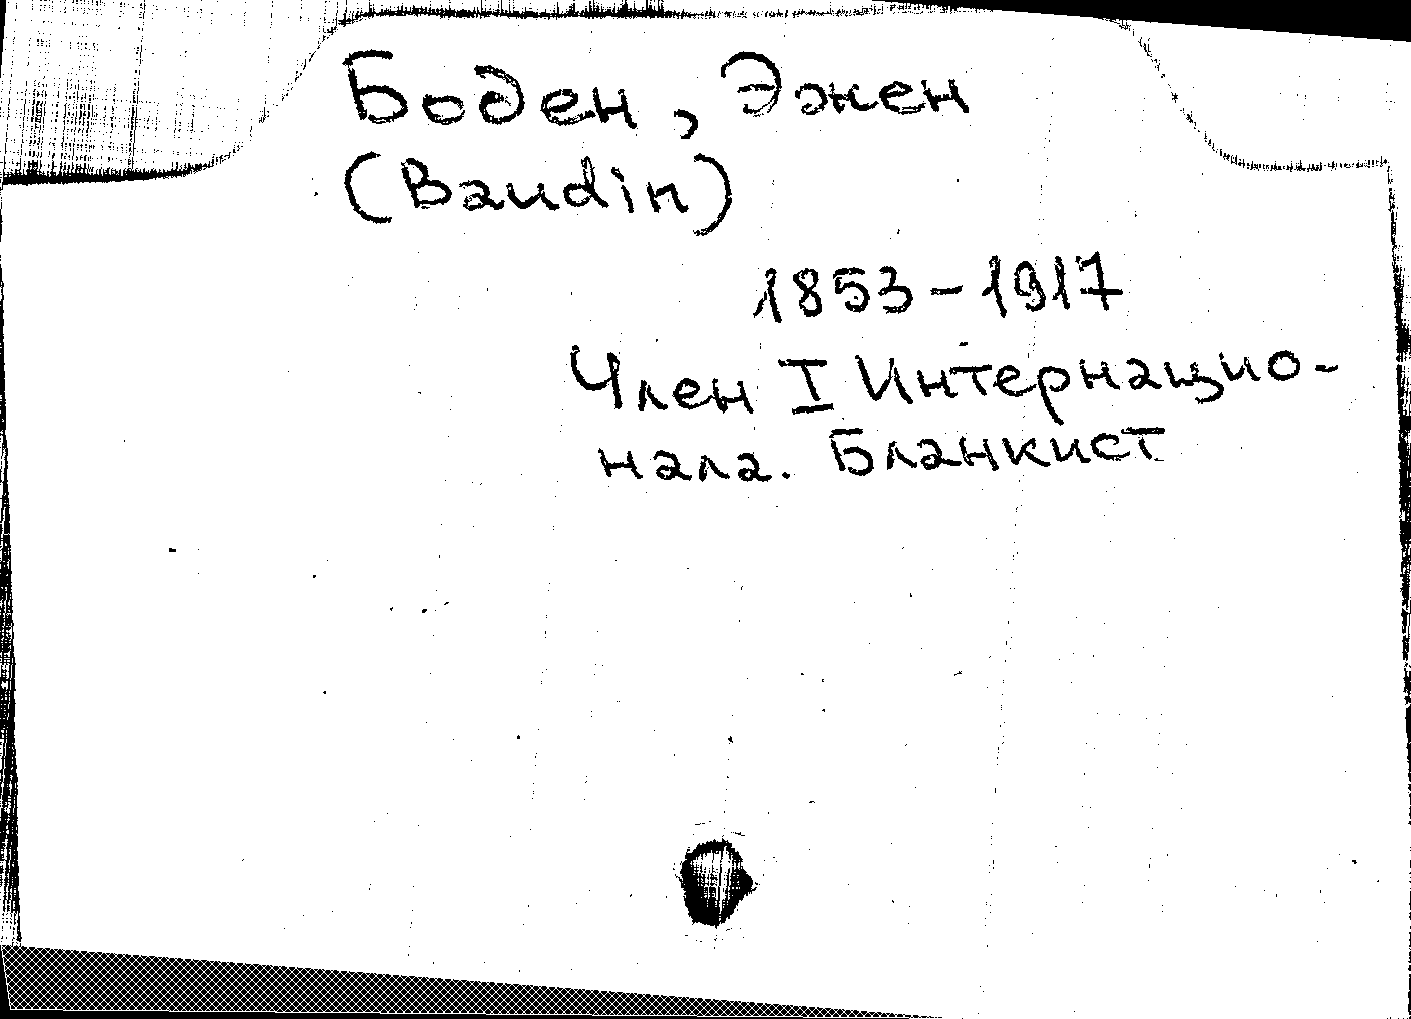 Боден, Эжен
(Baudin)
1853-1917
Член I Интернацио-
нала. Бланкист